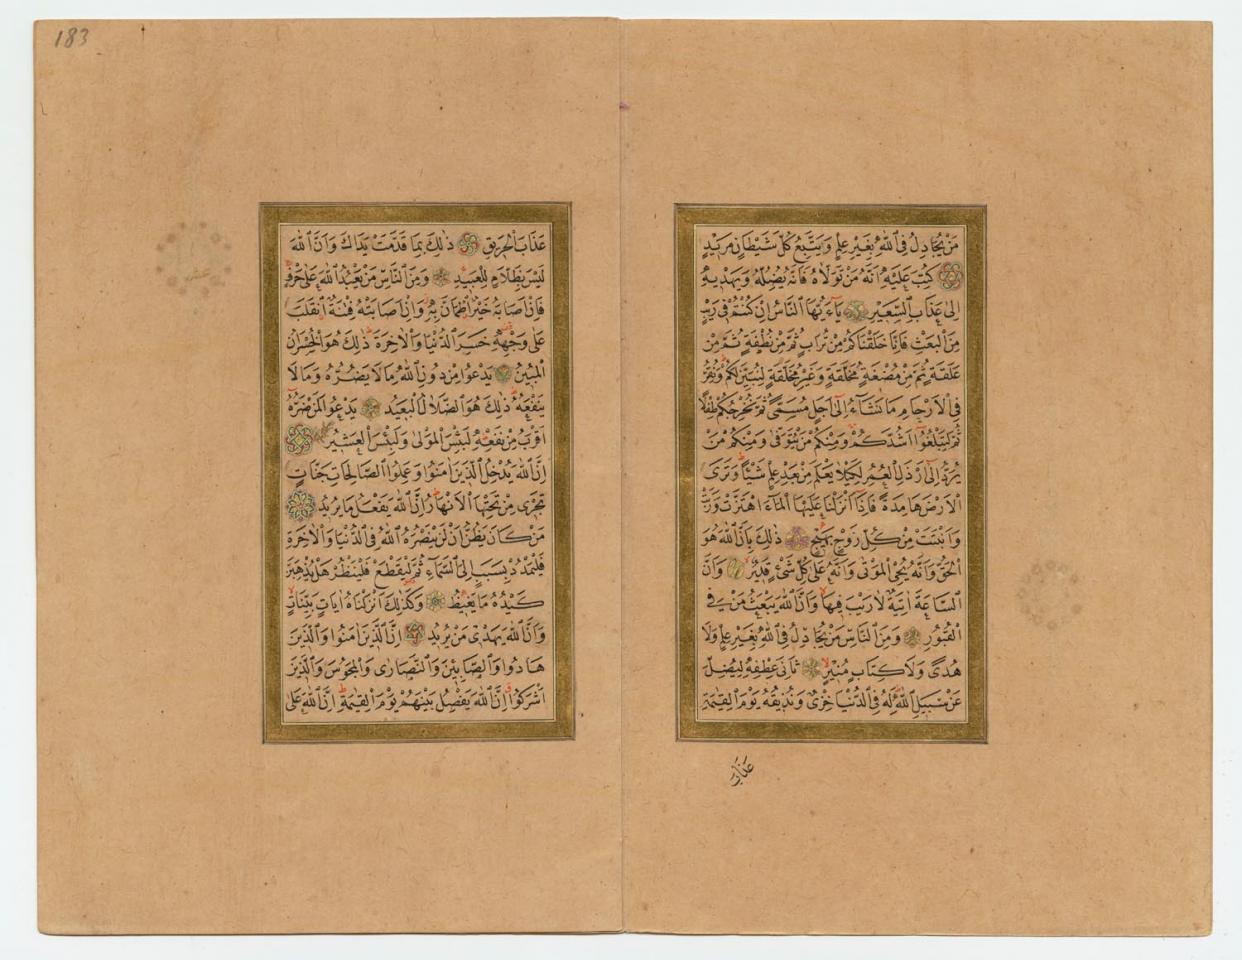 183
مَنْ يُجَادِلُ فِى اللّٰهِ بِغَيْرِ عِلْمٍ وَيَتَّبِعُ كُلَّ شَيْطَانٍ مَرِيدٍ
كُتِبَ عَلَيْهِ اَنَّهُ مَنْ تَوَلَّاهُ فَاَنَّهُ يُضِلُّهُ وَيَهْدِيهِ
اِلٰى عَذَابِ السَّعِيرِ يَآءَيُّهَا النَّاسُ اِنْ كُنْتُمْ فِى رَيْبٍ
مِنَ الْبَعْثِ فَاِنَّا خَلَقْنَاكُمْ مِنْ تُرَابٍ ثُمَّ مِنْ نُطْفَةٍ ثُمَّ مِنْ
عَلَقَةٍ ثُمَّ مِنْ مُضْغَةٍ مُخَلَّقَةٍ وَغَيْرِ مُخَلَّقَةٍ لِنُبَيِّنَ لَكُمْ وَنُقِرُّ
فِى الْاَرْحَامِ مَا نَشَآءُ اِلٰٓى اَجَلٍ مُسَمًّى ثُمَّ نُخْرِجُكُمْ طِفْلًا
ثُمَّ لِتَبْلُغُوٓا اَشُدَّكُمْ وَمِنْكُمْ مَنْ يُتَوَفّٰى وَمِنْكُمْ مَنْ
يُرَدُّ اِلٰٓى اَرْذَلِ الْعُمُرِ لِكَيْلَا يَعْلَمَ مِنْ بَعْدِ عِلْمٍ شَيْئًا وَتَرَى
الْاَرْضَ هَامِدَةً فَاِذَآ اَنْزَلْنَا عَلَيْهَا الْمَآءَ اهْتَزَّتْ وَرَبَتْ
وَاَنْبَتَتْ مِنْ كُلِّ زَوْجٍ بَهِيجٍ ذٰلِكَ بِاَنَّ اللّٰهَ هُوَ
الْحَقُّ وَاَنَّهُ يُحْيِى الْمَوْتٰى وَاَنَّهُ عَلٰى كُلِّ شَىْءٍ قَدِيرٌ وَاَنَّ
السَّاعَةَ اٰتِيَةٌ لَا رَيْبَ فِيهَا وَاَنَّ اللّٰهَ يَبْعَثُ مَنْ فِى
الْقُبُورِ وَمِنَ النَّاسِ مَنْ يُجَادِلُ فِى اللّٰهِ بِغَيْرِ عِلْمٍ وَلَا
هُدًى وَلَا كِتَابٍ مُنِيرٍ ثَانِىَ عِطْفِهِ لِيُضِلَّ
عَنْ سَبِيلِ اللّٰهِ لَهُ فِى الدُّنْيَا خِزْىٌ وَنُذِيقُهُ يَوْمَ الْقِيٰمَةِ
عَذَابَ
عَذَابَ الْحَرِيقِ ذٰلِكَ بِمَا قَدَّمَتْ يَدَاكَ وَاَنَّ اللّٰهَ
لَيْسَ بِظَلَّامٍ لِلْعَبِيدِ وَمِنَ النَّاسِ مَنْ يَعْبُدُ اللّٰهَ عَلٰى حَرْفٍ
فَاِنْ اَصَابَهُ خَيْرٌ اطْمَاَنَّ بِهِ وَاِنْ اَصَابَتْهُ فِتْنَةٌ انْقَلَبَ
عَلٰى وَجْهِهِ خَسِرَ الدُّنْيَا وَالْاٰخِرَةَ ذٰلِكَ هُوَ الْخُسْرَانُ
الْمُبِينُ يَدْعُوا مِنْ دُونِ اللّٰهِ مَا لَا يَضُرُّهُ وَمَا لَا
يَنْفَعُهُ ذٰلِكَ هُوَ الضَّلَالُ الْبَعِيدُ يَدْعُوا لَمَنْ ضَرُّهُ
اَقْرَبُ مِنْ نَفْعِهِ لَبِئْسَ الْمَوْلٰى وَلَبِئْسَ الْعَشِيرُ
اِنَّ اللّٰهَ يُدْخِلُ الَّذِينَ اٰمَنُوا وَعَمِلُوا الصَّالِحَاتِ جَنَّاتٍ
تَجْرِى مِنْ تَحْتِهَا الْاَنْهَارُ اِنَّ اللّٰهَ يَفْعَلُ مَا يُرِيدُ
مَنْ كَانَ يَظُنُّ اَنْ لَنْ يَنْصُرَهُ اللّٰهُ فِى الدُّنْيَا وَالْاٰخِرَةِ
فَلْيَمْدُدْ بِسَبَبٍ اِلَى السَّمَآءِ ثُمَّ لْيَقْطَعْ فَلْيَنْظُرْ هَلْ يُذْهِبَنَّ
كَيْدُهُ مَا يَغِيظُ وَكَذٰلِكَ اَنْزَلْنَاهُ اٰيَاتٍ بَيِّنَاتٍ
وَاَنَّ اللّٰهَ يَهْدِى مَنْ يُرِيدُ اِنَّ الَّذِينَ اٰمَنُوا وَالَّذِينَ
هَادُوا وَالصَّابِئِينَ وَالنَّصَارٰى وَالْمَجُوسَ وَالَّذِينَ
اَشْرَكُوٓا اِنَّ اللّٰهَ يَفْصِلُ بَيْنَهُمْ يَوْمَ الْقِيٰمَةِ اِنَّ اللّٰهَ عَلٰى